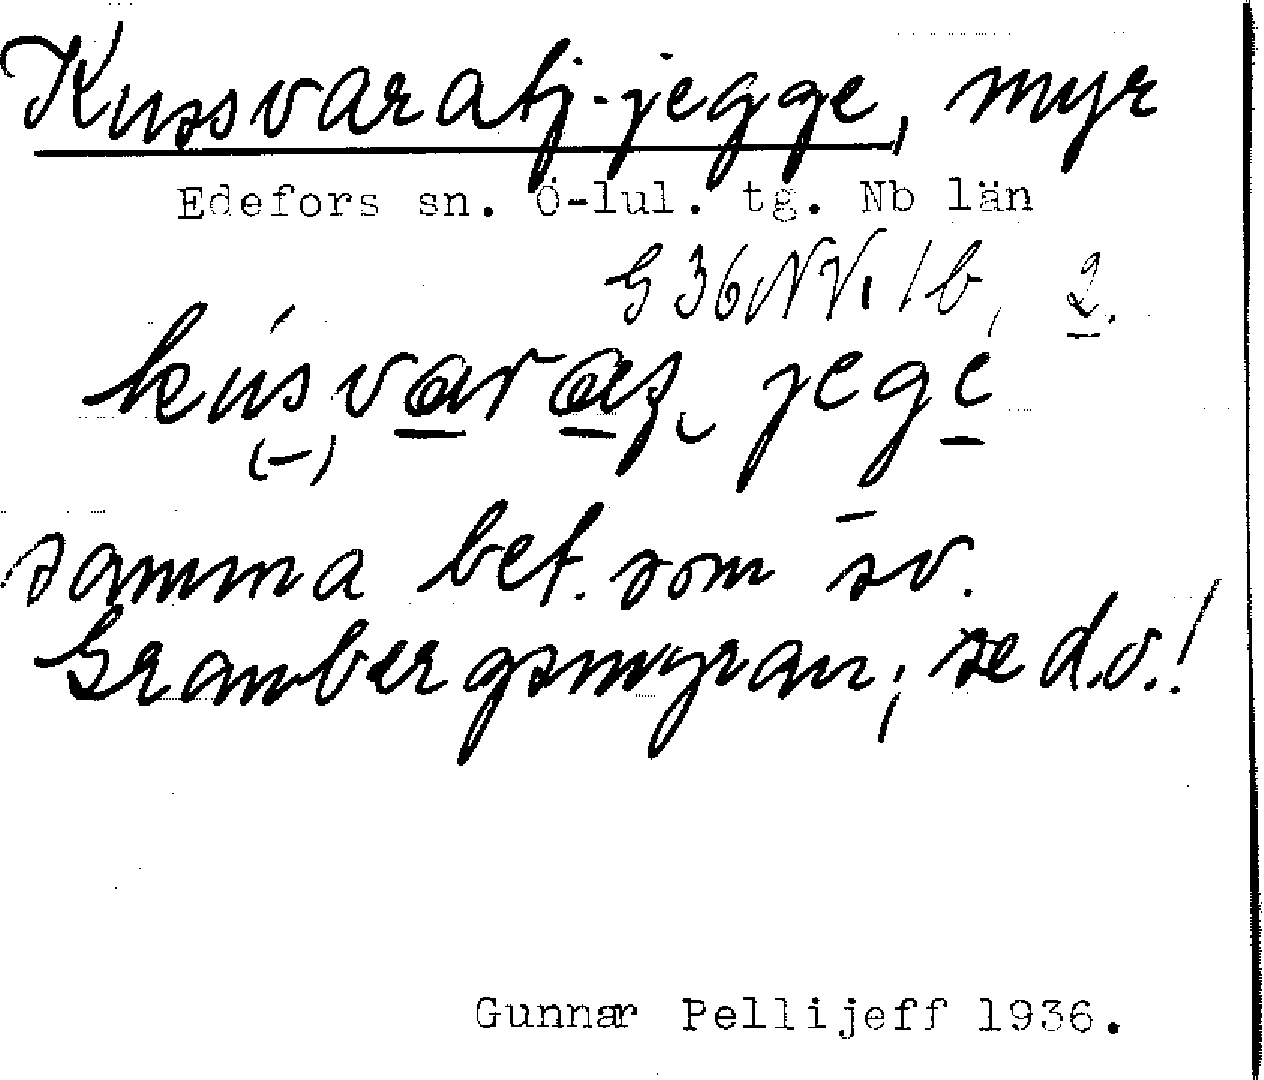 Kussvaratj-jegge, myr
Edefors sn. Ö-lul. tg. Nb län
G 36 NV, 1 b, 2.
jege
(-)
samma bet. som sv.
Granbergsmyran; se d.o.!
Gunnar Pellijeff 1936.